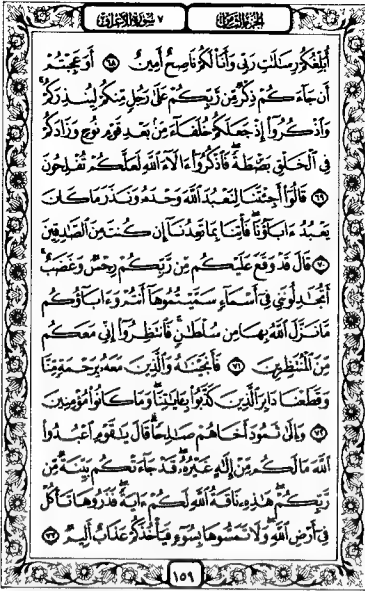 الجزء الثامن
٧ سورة الأعراف
أُبَلِّغُكُمْ رِسَٰلَٰتِ رَبِّى وَأَنَا۠ لَكُمْ نَاصِحٌ أَمِينٌ ٦٨ أَوَعَجِبْتُمْ
أَن جَآءَكُمْ ذِكْرٌ مِّن رَّبِّكُمْ عَلَىٰ رَجُلٍ مِّنكُمْ لِيُنذِرَكُمْ ۚ
وَٱذْكُرُوٓا۟ إِذْ جَعَلَكُمْ خُلَفَآءَ مِنۢ بَعْدِ قَوْمِ نُوحٍ وَزَادَكُمْ
فِى ٱلْخَلْقِ بَصْۜطَةً ۖ فَٱذْكُرُوٓا۟ ءَالَآءَ ٱللَّهِ لَعَلَّكُمْ تُفْلِحُونَ
٦٩ قَالُوٓا۟ أَجِئْتَنَا لِنَعْبُدَ ٱللَّهَ وَحْدَهُۥ وَنَذَرَ مَا كَانَ
يَعْبُدُ ءَابَآؤُنَا ۖ فَأْتِنَا بِمَا تَعِدُنَآ إِن كُنتَ مِنَ ٱلصَّٰدِقِينَ
٧٠ قَالَ قَدْ وَقَعَ عَلَيْكُم مِّن رَّبِّكُمْ رِجْسٌ وَغَضَبٌ ۖ
أَتُجَٰدِلُونَنِى فِىٓ أَسْمَآءٍ سَمَّيْتُمُوهَآ أَنتُمْ وَءَابَآؤُكُم
مَّا نَزَّلَ ٱللَّهُ بِهَا مِن سُلْطَٰنٍ ۚ فَٱنتَظِرُوٓا۟ إِنِّى مَعَكُم
مِّنَ ٱلْمُنتَظِرِينَ ٧١ فَأَنجَيْنَٰهُ وَٱلَّذِينَ مَعَهُۥ بِرَحْمَةٍ مِّنَّا
وَقَطَعْنَا دَابِرَ ٱلَّذِينَ كَذَّبُوا۟ بِـَٔايَٰتِنَا ۖ وَمَا كَانُوا۟ مُؤْمِنِينَ
٧٢ وَإِلَىٰ ثَمُودَ أَخَاهُمْ صَٰلِحًا ۗ قَالَ يَٰقَوْمِ ٱعْبُدُوا۟
ٱللَّهَ مَا لَكُم مِّنْ إِلَٰهٍ غَيْرُهُۥ ۖ قَدْ جَآءَتْكُم بَيِّنَةٌ مِّن
رَّبِّكُمْ ۖ هَٰذِهِۦ نَاقَةُ ٱللَّهِ لَكُمْ ءَايَةً ۖ فَذَرُوهَا تَأْكُلْ
فِىٓ أَرْضِ ٱللَّهِ ۖ وَلَا تَمَسُّوهَا بِسُوٓءٍ فَيَأْخُذَكُمْ عَذَابٌ أَلِيمٌ ٧٣
١٥٩